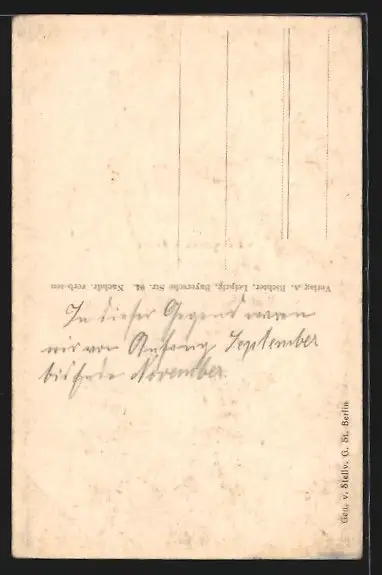 Verlag A. Richter, Leipzig, Bayersche Str. 94. Nachdr. verboten
In dieser Gegend waren
wir von Anfang September
bis Ende November.
Gen. v. Stellv. G. St. Berlin